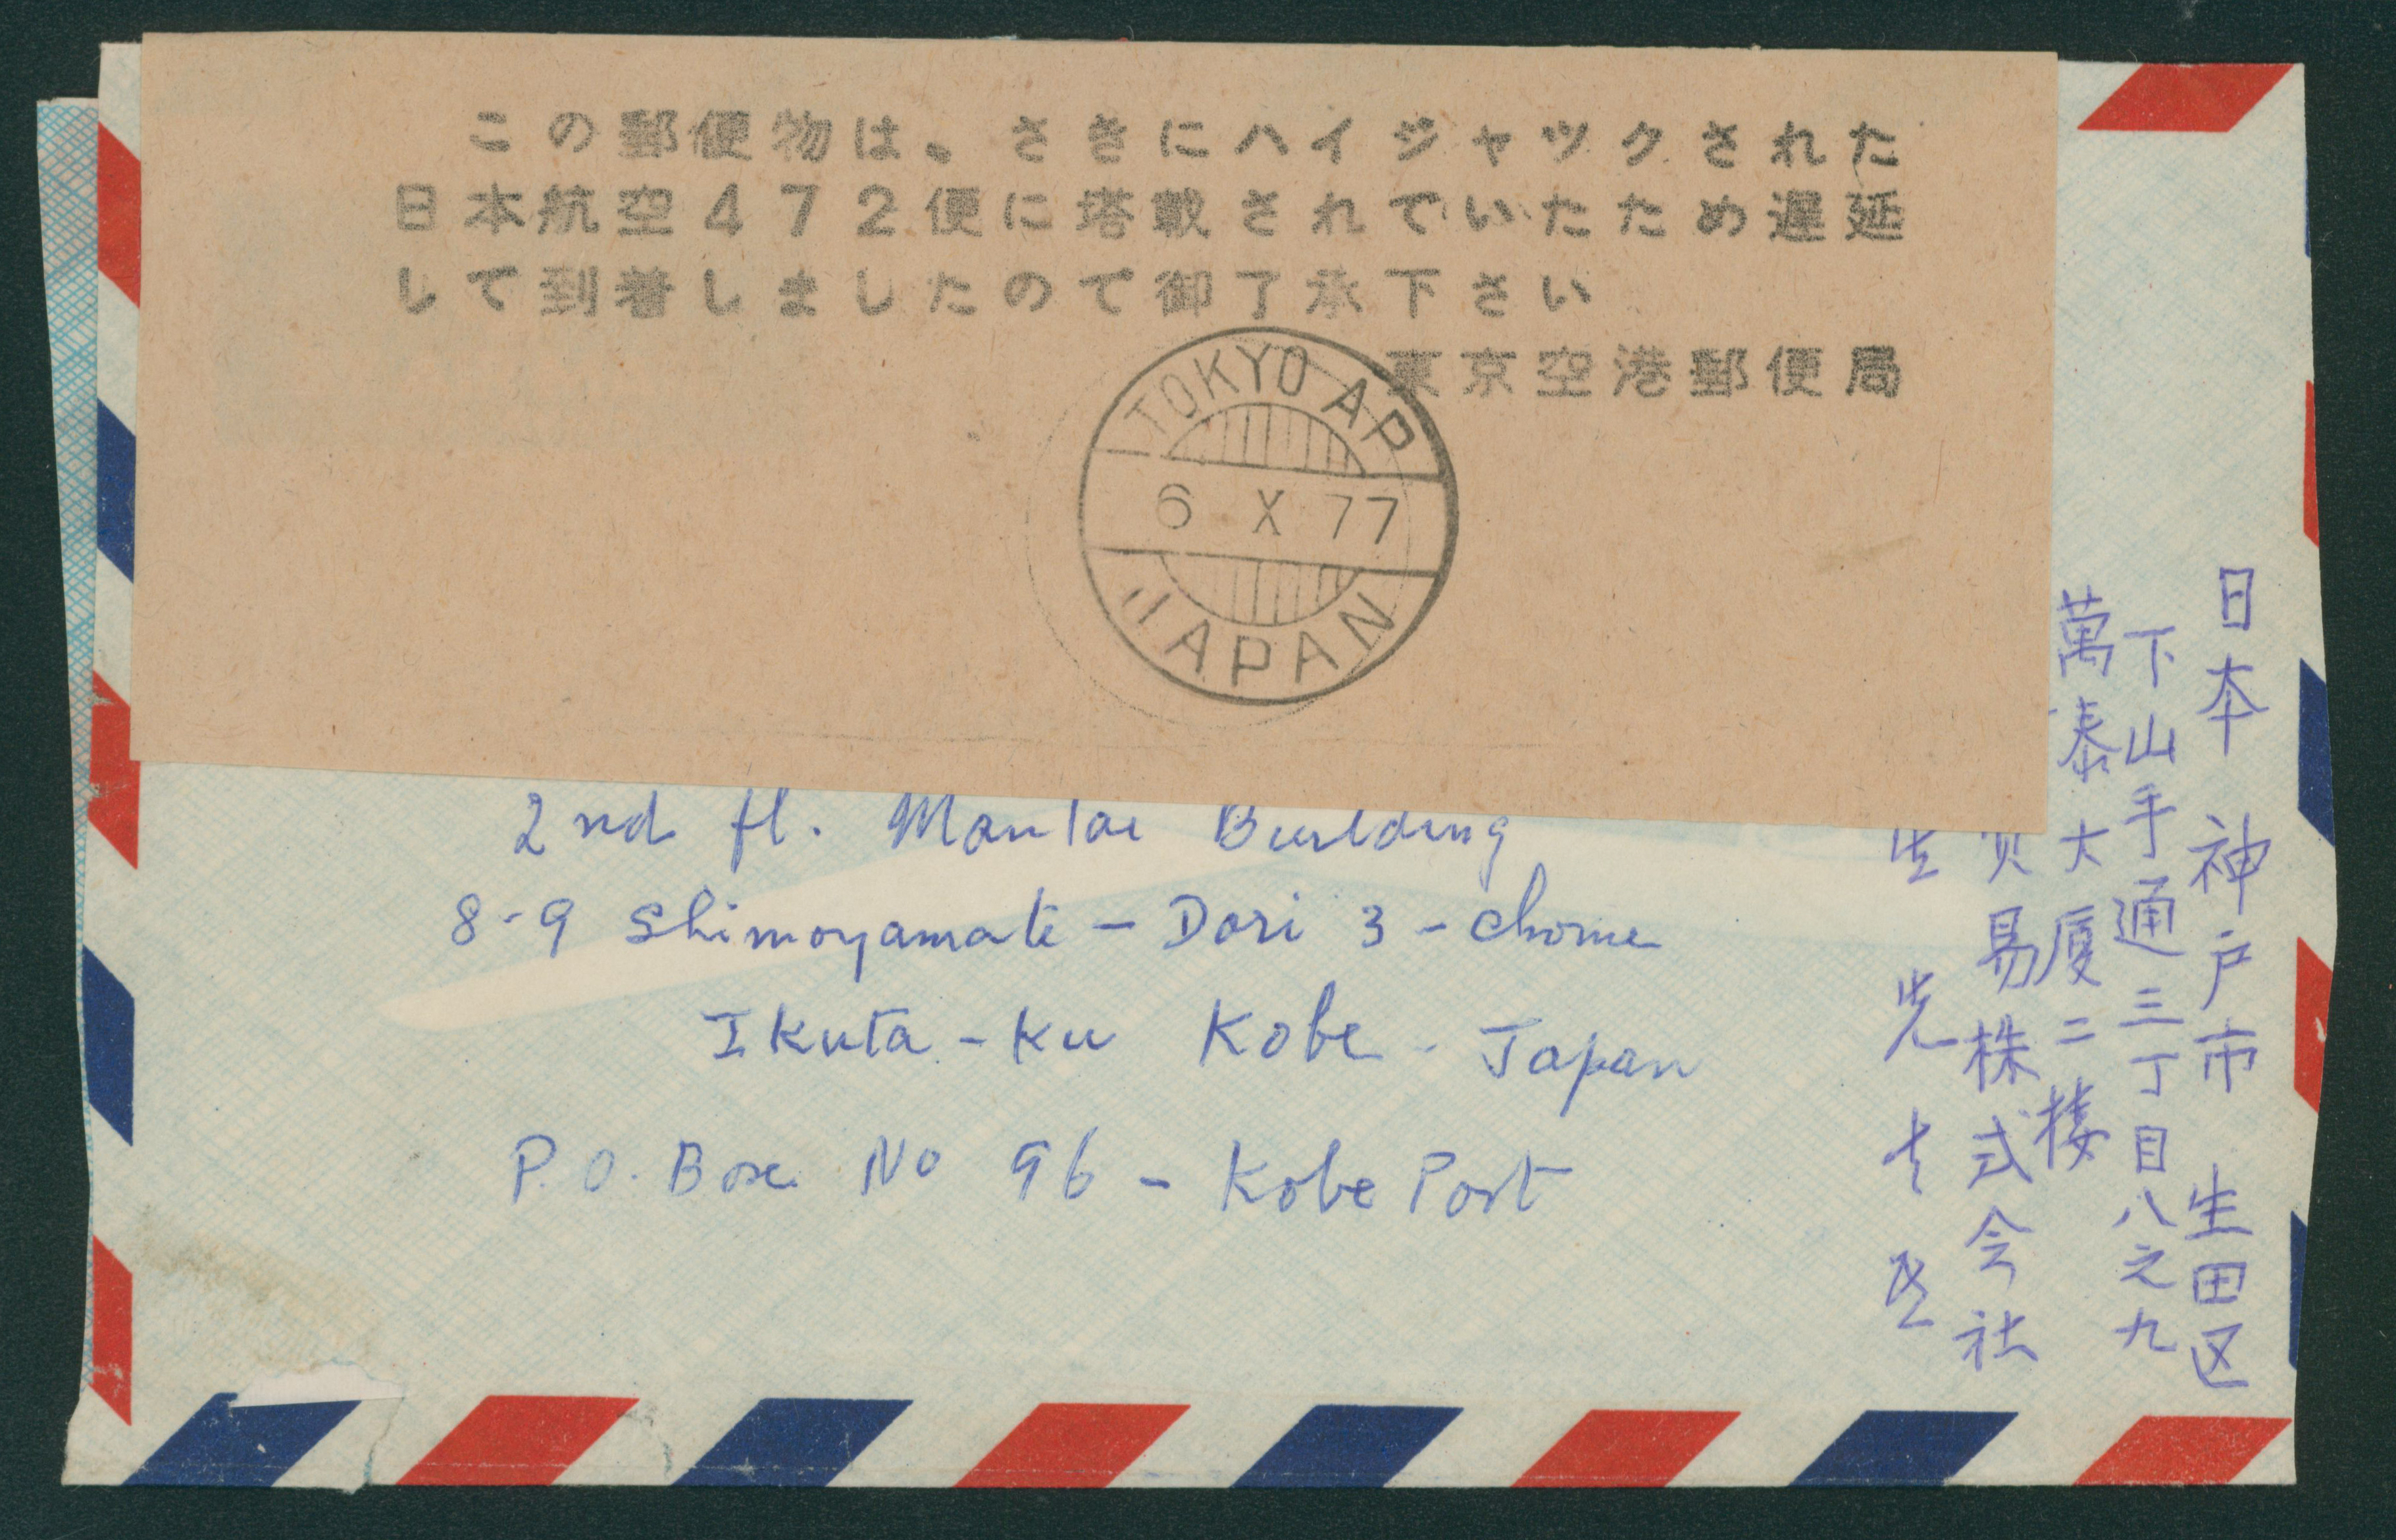 この郵便物は、さきにハイジャックされた
日本航空472便に塔載されていたため遅延
して到着しましたので御了承下さい
東京空港郵便局
TOKYO AP
6 X 77
JAPAN
2nd fl. Mantai Building
8-9 Shimoyamate - Dori 3 - chome
Ikuta - Ku Kobe - Japan
P.O. Box No 96 - Kobe Port
日本 神戸市 生田区
下山手通三丁目八之九
萬泰大廈二楼
贸易株式会社
先